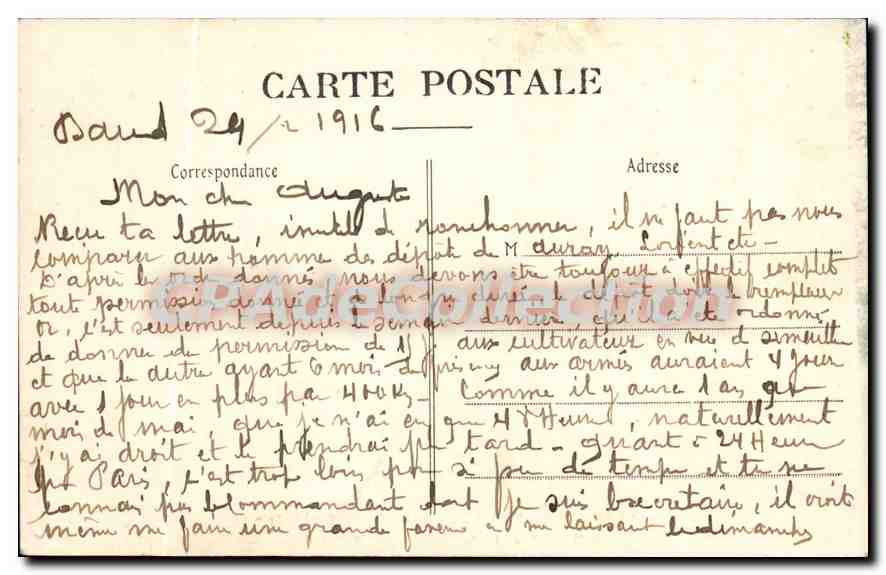 CARTE POSTALE
Baud 24/2 1916
Correspondance
Adresse
Mon cher Auguste
Recu ta lettre, inutile de ronchonner, il ne faut pas nous
comparer aux homme des dépôts de Lorient etc -
D'après les ordre donnés, nous devons être toujour à effectif complet
toute permission donnée et à longue durée le droit dois le remplacer
or, c'est seulement depuis la semaine dernier, qu'il a été ordonné
de donner de permission de 15 j. aux cultivateur en vue d
et que la autre ayant 6 mois de présency aux armés auraient 4 jour
avec 1 jour en plus par 400 Ks - Comme il y aura 1 an au
mois de mai, que je n'ai eu que 48 Heures, naturellement
j'y ai droit et le prendrai plus tard - quant à 24 Heures
pour Paris, c'est trop long pour si peu de temps et tu ne
connais pas le Commandant dont je suis secretaire, il croit
même me faire une grande faveur en me laissant le dimanche
CPA de Collection